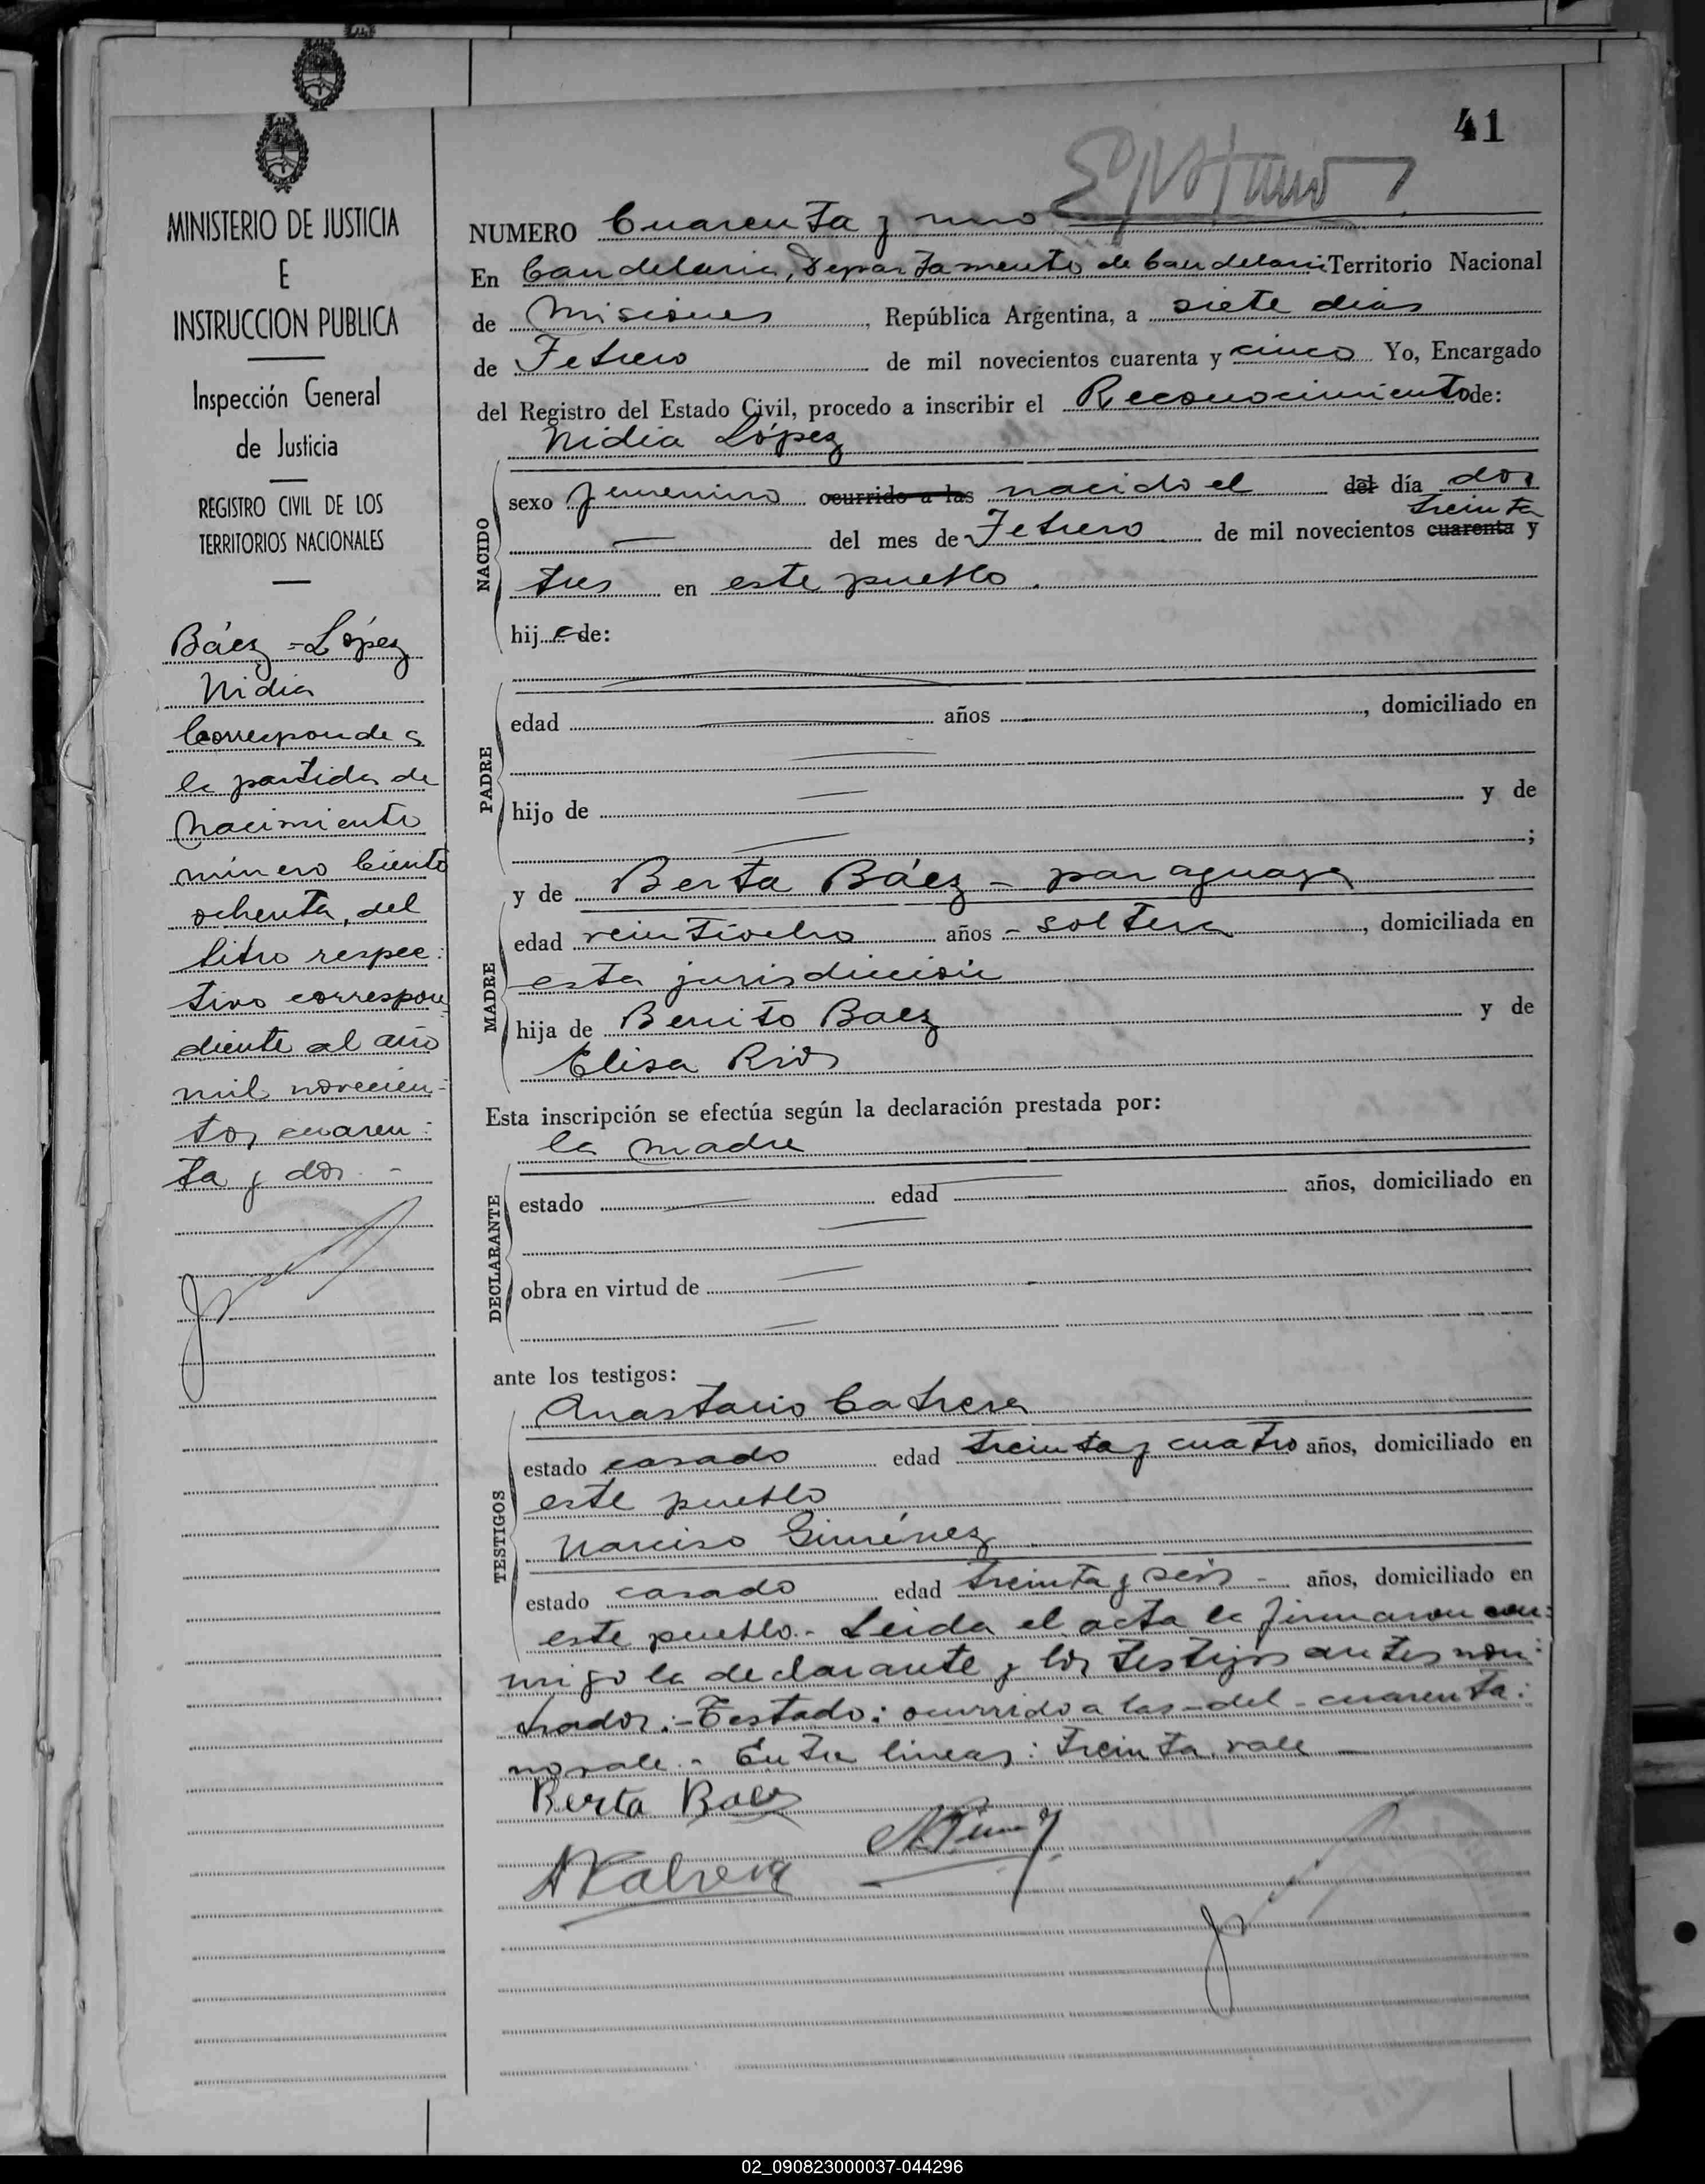 41
MINISTERIO DE JUSTICIA
E
INSTRUCCION PUBLICA
Inspección General
de Justicia
REGISTRO CIVIL DE LOS
TERRITORIOS NACIONALES
Báez=López
Nidia
Corresponde a
la partida de
Nacimiento
número Ciento
ochenta, del
libro respec=
tivo correspon
diente al año
mil novecien=
tos cuaren=
ta y dos.-
NUMERO Cuarenta y uno
En Candelaria, Departamento de Candelaria Territorio Nacional
de Misiones, República Argentina, a siete dias
de Febrero de mil novecientos cuarenta y cinco Yo, Encargado
del Registro del Estado Civil, procedo a inscribir el Reconocimiento de:
Nidia López
NACIDO
sexo femenino ocurrido a las nacido el del día dos
treinta
— del mes de Febrero de mil novecientos cuarenta y
tres en este pueblo.
hija de:
PADRE
edad años, domiciliado en
hijo de y de
;
MADRE
y de Berta Báez - paraguaya
edad veintiocho años - soltera, domiciliada en
esta jurisdicción
hija de Benito Baez y de
Elisa Rios
Esta inscripción se efectúa según la declaración prestada por:
la madre
DECLARANTE
estado edad años, domiciliado en
obra en virtud de
ante los testigos:
TESTIGOS
Anastacio Cabrera
estado casado edad treinta y cuatro años, domiciliado en
este pueblo
Narciso Giménez
estado casado edad treinta y seis - años, domiciliado en
este pueblo.- Leida el acta la firmaron con=
migo la declarante y los testigos antes nom=
brados.- Testado: ocurrido a las - del - cuarenta:
no vale.- Entre lineas: treinta. vale —
Berta Baez
A Cabrera
02_090823000037-044296